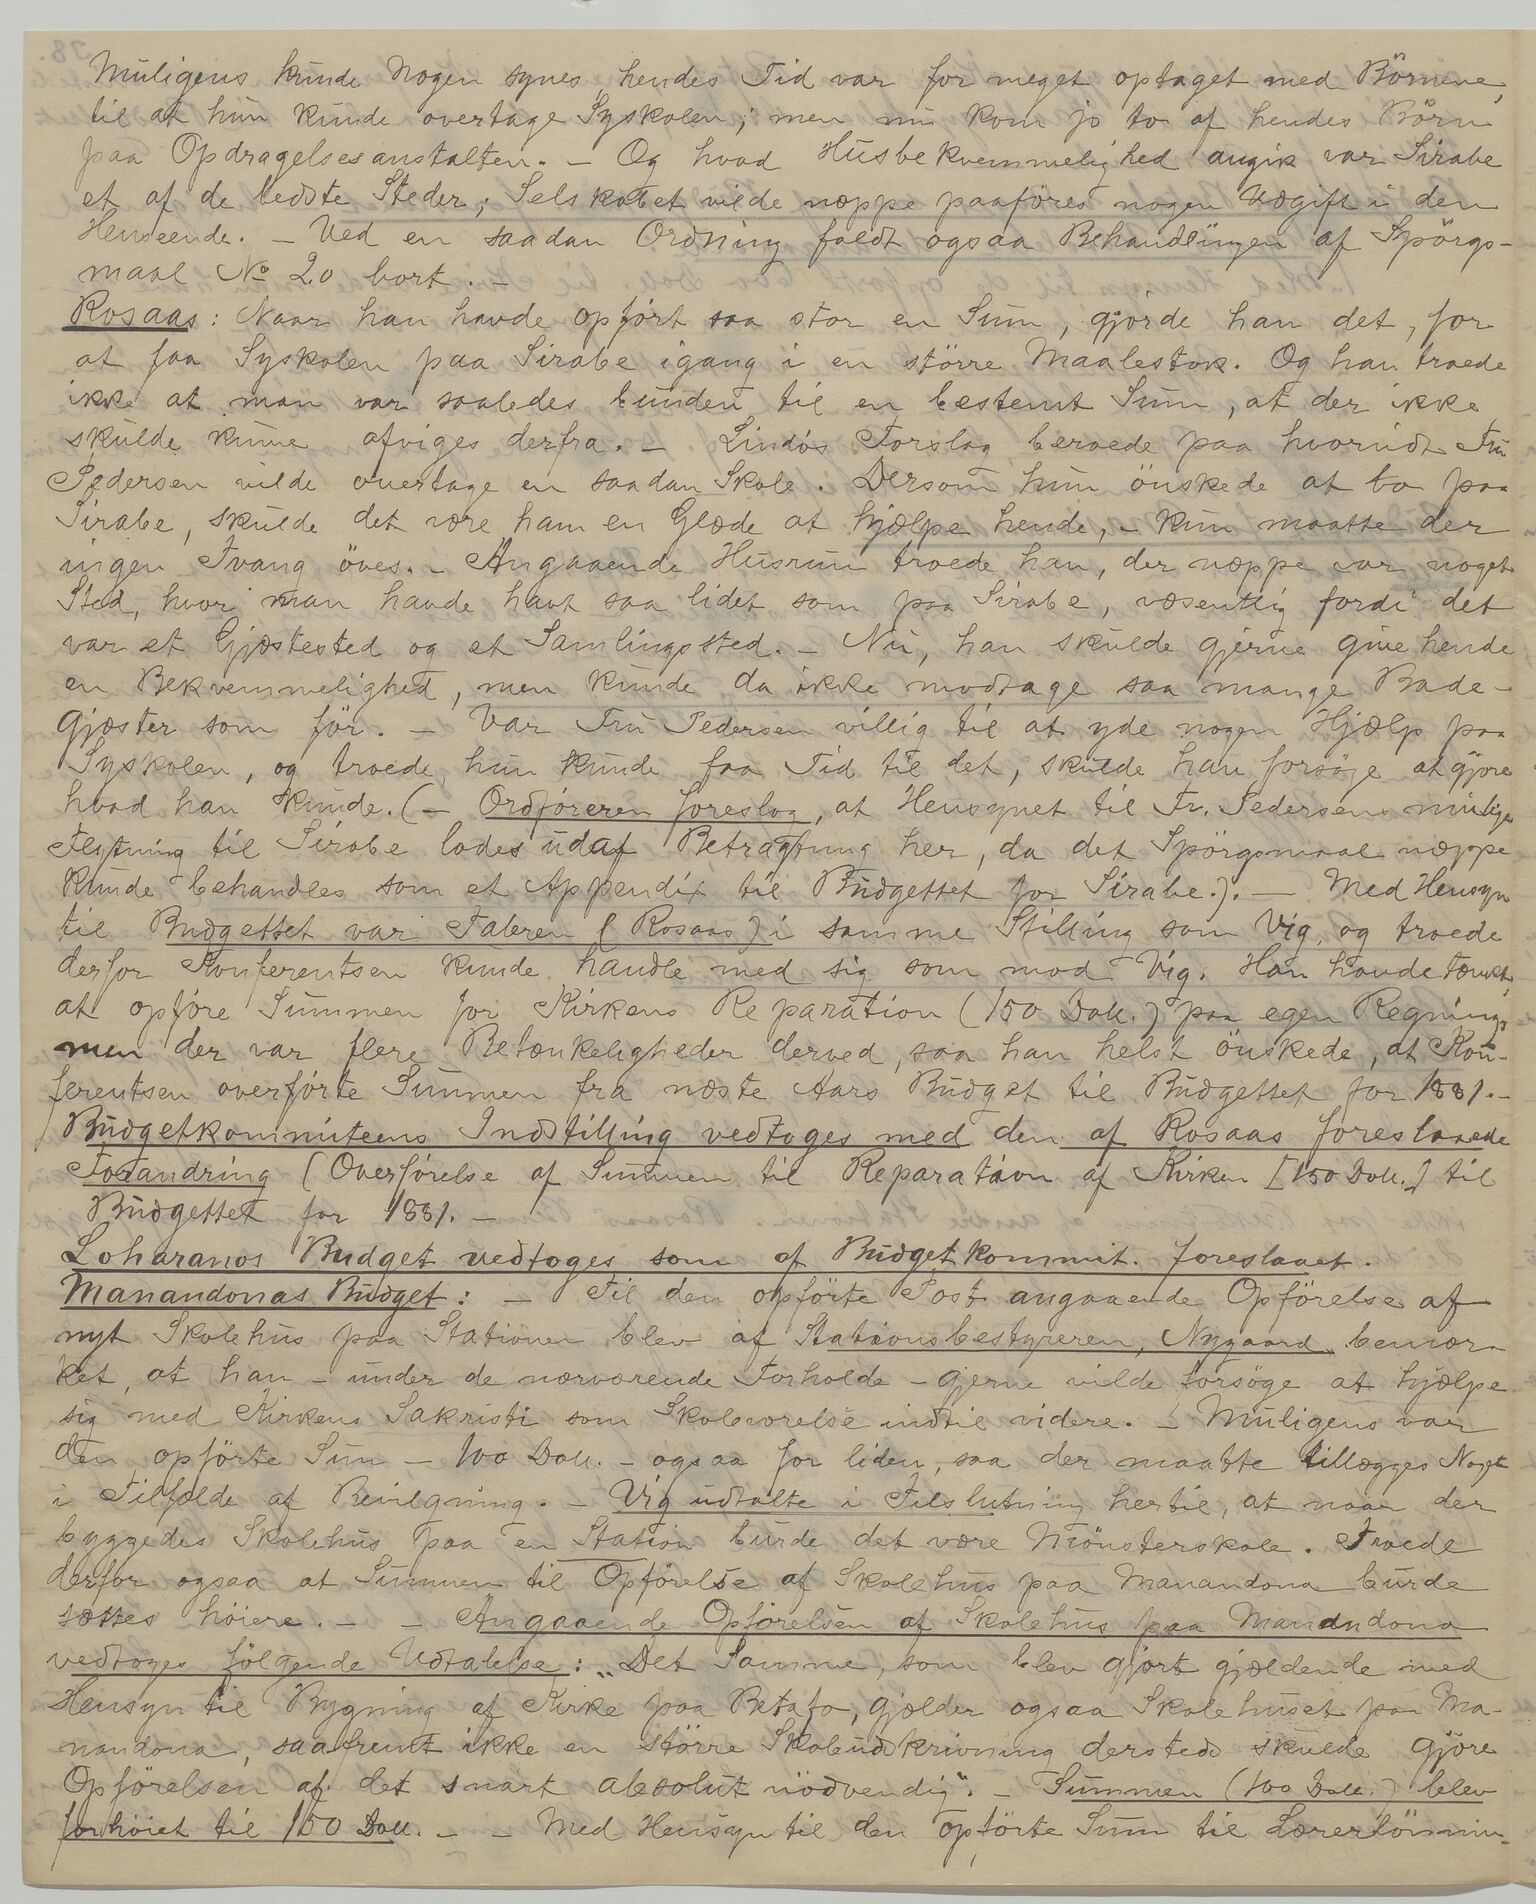 Muligens kunde Nogen synes, hendes Tid var for meget optaget med Börnene,
til at hun kunde overtage Syskolen; men nu kom jo to af hendes Börn
paa Opdragelsesanstalten. – Og hvad Husbekvemmelighed angik var Sirabe
et af de bedste Steder; Selskabet vilde næppe paaföres nogen Udgift i den
Henseende. – Ved en saadan Ordning faldt ogsaa Behandlingen af Spörgs-
maal No 20 bort. –
Rosaas: Naar han havde opfört saa stor en Sum, gjorde han det, for
at faa Syskolen paa Sirabe igang i en större Maalestok. Og han troede
ikke at man var saaledes bunden til en bestemt Sum, at der ikke
skulde kunne afviges derfra. – Lindös Forslag beroede paa hvorvidt Fru
Pedersen vilde overtage en saadan Skole. Dersom hun önskede at bo paa
Sirabe, skulde det være ham en Glæde at hjælpe hende, – kun maatte der
ingen Tvang öves. – Angaaende Husrum troede han, der næppe var noget
Sted, hvor man havde havt saa lidet som paa Sirabe, væsentlig fordi det
var et Gjæstested og et Samlingssted. – Nu, han skulde gjerne give hende
en Bekvemmelighed, men kunde da ikke modtage saa mange Bade-
gjæster som för. – Var Fru Pedersen villig til at yde nogen Hjælp paa
Syskolen, og troede, hun kunde faa Tid til det, skulde han forsöge at gjöre
hvad han kunde. (– Ordföreren foreslog, at Hensynet til Fr. Pedersens mulige
Flytning til Sirabe lades ud af Betragtning her, da det Spörgsmaal næppe
kunde behandles som et Appendix til Budgettet for Sirabe.). – Med Hensyn
til Budgettet var Taleren (Rosaas) i samme Stilling som Vig, og troede
derfor Konferentsen kunde handle med sig som mod Vig. Han havde tænkt,
at opföre Summen for Kirkens Reparation (150 Doll.) paa egen Regning,
men der var flere Betænkeligheder derved, saa han helst önskede, at Kon-
ferentsen overförte Summen fra næste Aars Budget til Budgettet for 1881. –
Budgetkommiteens Indstilling vedtoges med den af Rosaas foreslaaede
Forandring (Overförelse af Summen til Reparation af Kirken [150 Doll.] til
Budgettet for 1881. –
Loharanos Budget vedtoges som af Budgetkommit. foreslaaet.
Manandonas Budget: – Til den opförte Post angaaende Opförelse af
nyt Skolehus paa Stationen blev af Stationsbestyreren, Nygaard bemær-
ket, at han – under de nærværende Forholde – gjerne vilde forsöge at hjælpe
sig med Kirkens Sakristi som Skoleværelse indtil videre. – Muligens var
den opförte Sum – 100 Doll. – ogsaa for liden, saa der maatte tillægges Noget
i Tilfælde af Bevilgning. – Vig udtalte i Tilslutning hertil, at naar der
byggedes Skolehus paa en Station burde det være Mönsterskole. Troede
derfor ogsaa at Summen til Opförelse af Skolehus paa Manandona burde
sættes höiere. – – Angaaende Opförelsen af Skolehus paa Manandona
vedtoges fölgende Udtalelse: „Det Samme, som blev gjort gjældende med
Hensyn til Bygning af Kirke paa Betafo, gjælder ogsaa Skolehuset paa Ma-
nandona, saafremt ikke en större Skoleudskrivning dersteds skulde gjöre
Opförelsen af det snart absolut nödvendig“. – Summen (100 Doll.) blev
forhöiet til 150 Doll. – – Med Hensyn til den opförte Sum til Lærerlönnin-